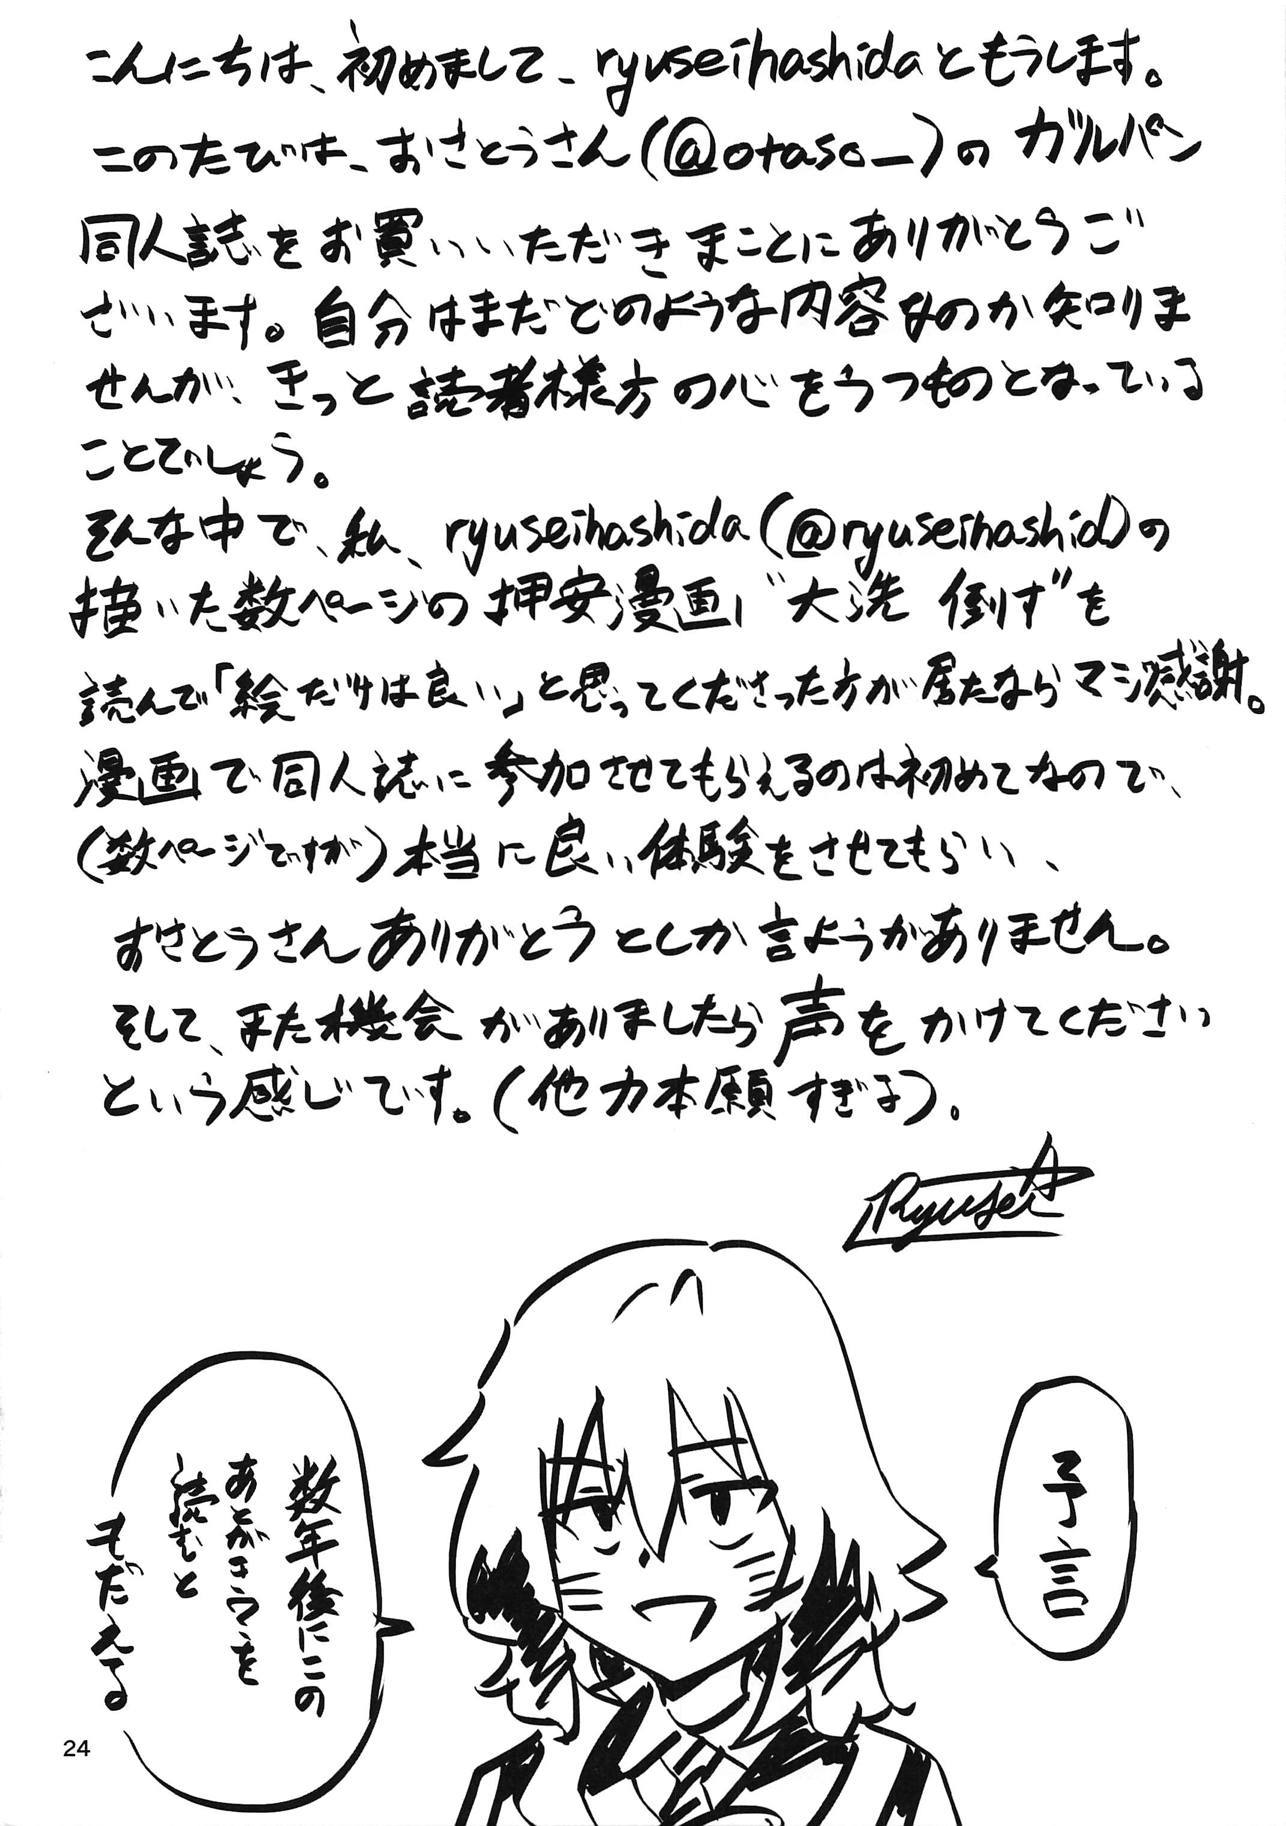 こんにちは、初めまして、ryuseihashidaともうします。
このたびは、おさとうさん(@otaso_)のガルパン
同人誌をお買いいただきまことにありがとうご
ざいます。自分はまだどのような内容なのか知りま
せんが、きっと読者様方の心をうつものとなっている
ことでしょう。
そんな中で、私、ryuseihashida(@ryuseihashid)の
描いた数ページの押安漫画"大洗 倒す"を
読んで「絵だけは良い」と思ってくださった方が居たならマジ感謝。
漫画で同人誌に参加させてもらえるのは初めてなので、
(数ページですが)本当に良い体験をさせてもらい、
おさとうさんありがとうとしか言ようがありません。
そして、また機会がありましたら声をかけてください
という感じです。(他力本願すぎる)。
Ryusei
予言
数年後にこの
あとがきを
読むと
もだえる
24